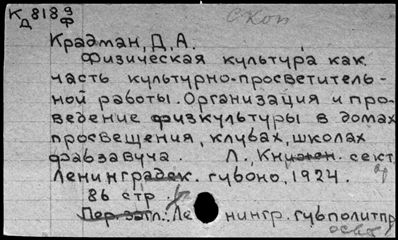 К 818 9
Д Ф
скоп
Крадман, Д. А.
Физическая культура как
часть культурно-просветитель-
ной работы. Организация и про-
ведение физкультуры в домах
просвещения, клубах, школах
фабзавуча. Л., Книжн. сект.
Ленинградск. губоно, 1924.
86 стр.
Пер. загл.: Ленингр. губполитпр
освет